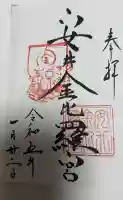 奉拝
安井金比羅宮
令和五年
一月廿二日